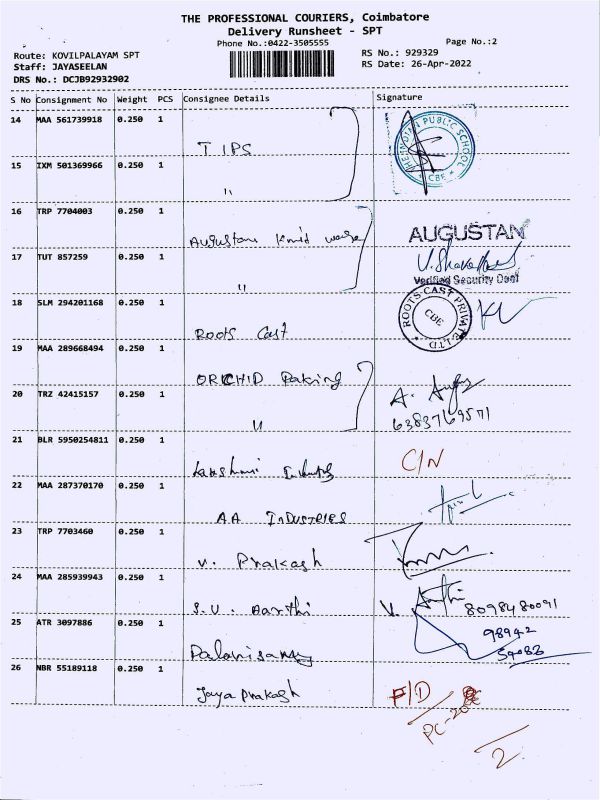 THE PROFESSIONAL COURIERS, Coimbatore
Delivery Runsheet - SPT
Phone No.:0422-3505555
Page No.:2
Route: KOVILPALAYAM SPT
RS No.: 929329
Staff: JAYASEELAN
RS Date: 26-Apr-2022
DRS No.: DCJB92932902
S No Consignment No Weight PCS Consignee Details Signature
14 MAA 561739918 0.250 1
TIPS
PUBLIC SCHOOL
CBE
15 IXM 501369966 0.250 1
"
16 TRP 7704003 0.250 1
Augustan Knit wear
AUGUSTAN
17 TUT 857259 0.250 1
"
Verified Security Dept
18 SLM 294201168 0.250 1
Roots Cast
ROOTS CAST PRIVATE LTD
CBE
19 MAA 289668494 0.250 1
ORCHID Paking
20 TRZ 42415157 0.250 1
"
6383769571
21 BLR 5950254811 0.250 1
Lakshmi
C/N
22 MAA 287370170 0.250 1
AA INDUSTRIES
23 TRP 7703460 0.250 1
V. Prakash
24 MAA 285939943 0.250 1
S.V. Aarthi
8098480091
25 ATR 3097886 0.250 1
Palanisamy
98942
54083
26 NBR 55189118 0.250 1
Jaya Prakash
F/D
2